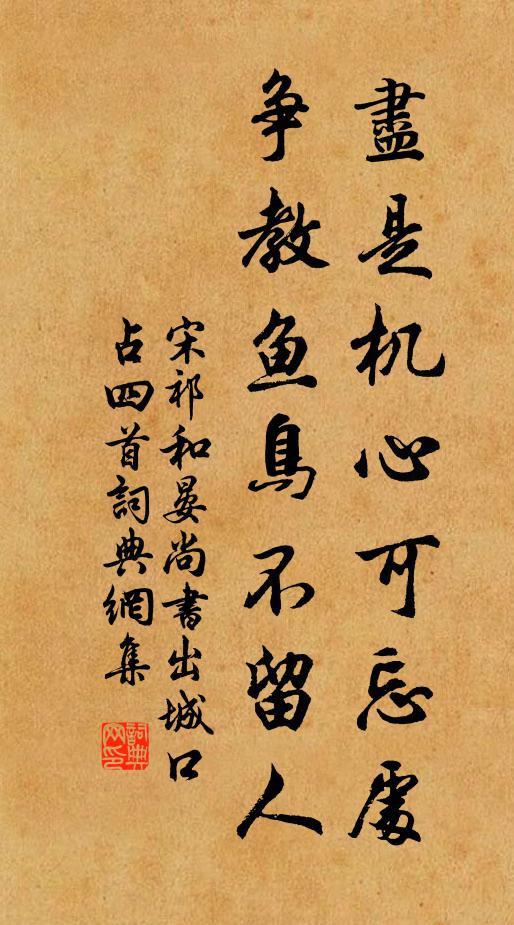 盡是机心可忘處
争教鱼鳥不留人
宋祁和晏尚書出城口
占四首詞典網集
詞典
网印